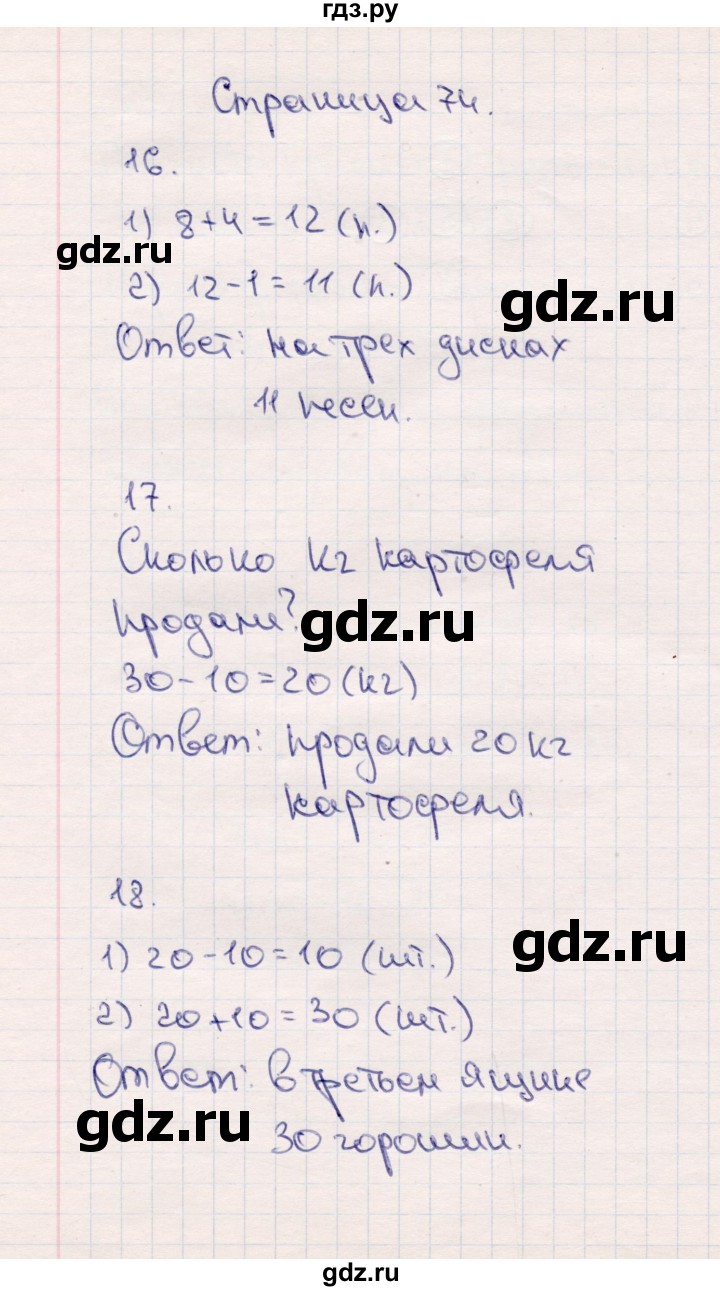 гдз.ру
Страница 74.
16.
1) 8+4=12 (п.)
gdz.ru
2) 12-1=11 (п.)
gdz.ru
Ответ: на трех дисках
11 песен.
17.
Сколько кг картофеля
продали?
gdz.ru
30-10=20 (кг)
Ответ: продали 20 кг
картофеля.
18.
1) 20-10=10 (шт.)
gdz.ru
2) 20+10=30 (шт.)
Ответ: в третьем ящике
gdz.ru
30 горошин.
gdz.ru